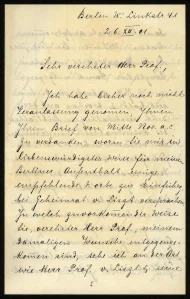 Berlin W. Linkstr 41
26 XII. 01
Sehr verehrter Herr Prof.,
Ich habe bisher noch nicht
Veranlassung genommen Ihnen
Ihren Brief von Mitte Nov. a.c.
zu verdanken, worin Sie mir in
liebenswürdigster Weise für meinen
Berliner Aufenthalt einige
empfehlende Worte
bei Geheimrat v. Liszt versprachen.
In welch zuvorkommender Weise
Sie, verehrter Herr Prof., meinem
damaligen Wunsche entgegenge-
kommen sind, sehe ich an der Art
wie Herr Prof. v. Liszt seine